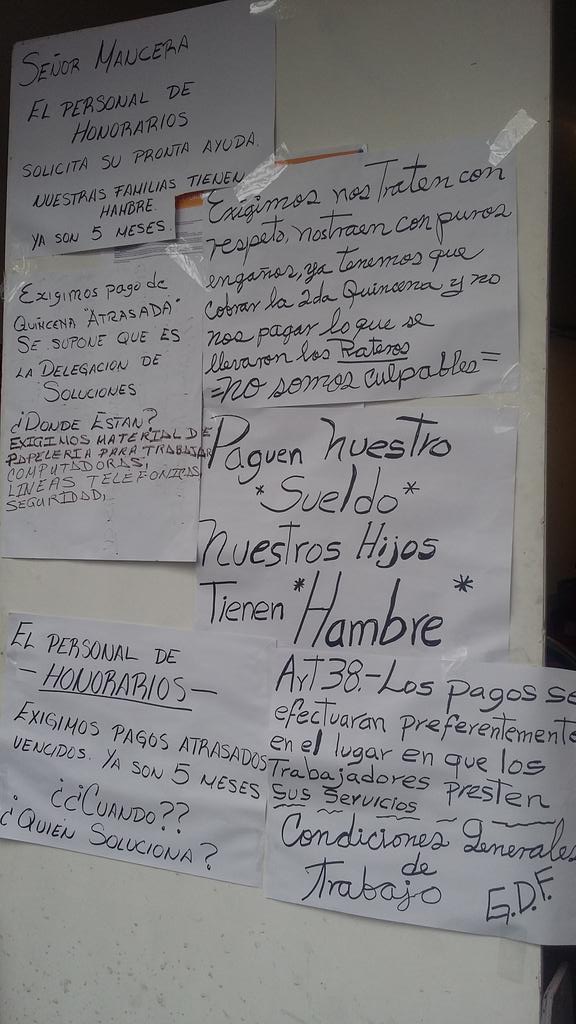 SEÑOR MANCERA
EL PERSONAL DE
HONORARIOS
SOLICITA SU PRONTA AYUDA.
NUESTRAS FAMILIAS TIENEN
HAMBRE.
YA SON 5 MESES.
Exigimos nos Traten con
respeto, nos traen con puros
engaños, ya tenemos que
cobrar la 2da Quincena y no
nos pagar lo que se
llevaron los Rateros
=no somos culpables=
Exigimos pago de
QUINCENA "ATRASADA"
SE SUPONE QUE ES
LA DELEGACION DE
SOLUCIONES
¿DONDE ESTAN?
EXIGIMOS MATERIAL DE
PAPELERIA PARA TRABAJAR
COMPUTADORAS,
LINEAS TELEFONICAS,
SEGURIDAD,
Paguen nuestro
*Sueldo*
Nuestros Hijos
Tienen *Hambre*
EL PERSONAL DE
- HONORARIOS -
EXIGIMOS PAGOS ATRASADOS
VENCIDOS. YA SON 5 MESES
¿¿CUANDO??
¿QUIEN SOLUCIONA?
Art 38.- Los pagos se
efectuaran preferentemente
en el lugar en que los
Trabajadores presten
sus servicios
Condiciones Generales
de
Trabajo G.D.F.